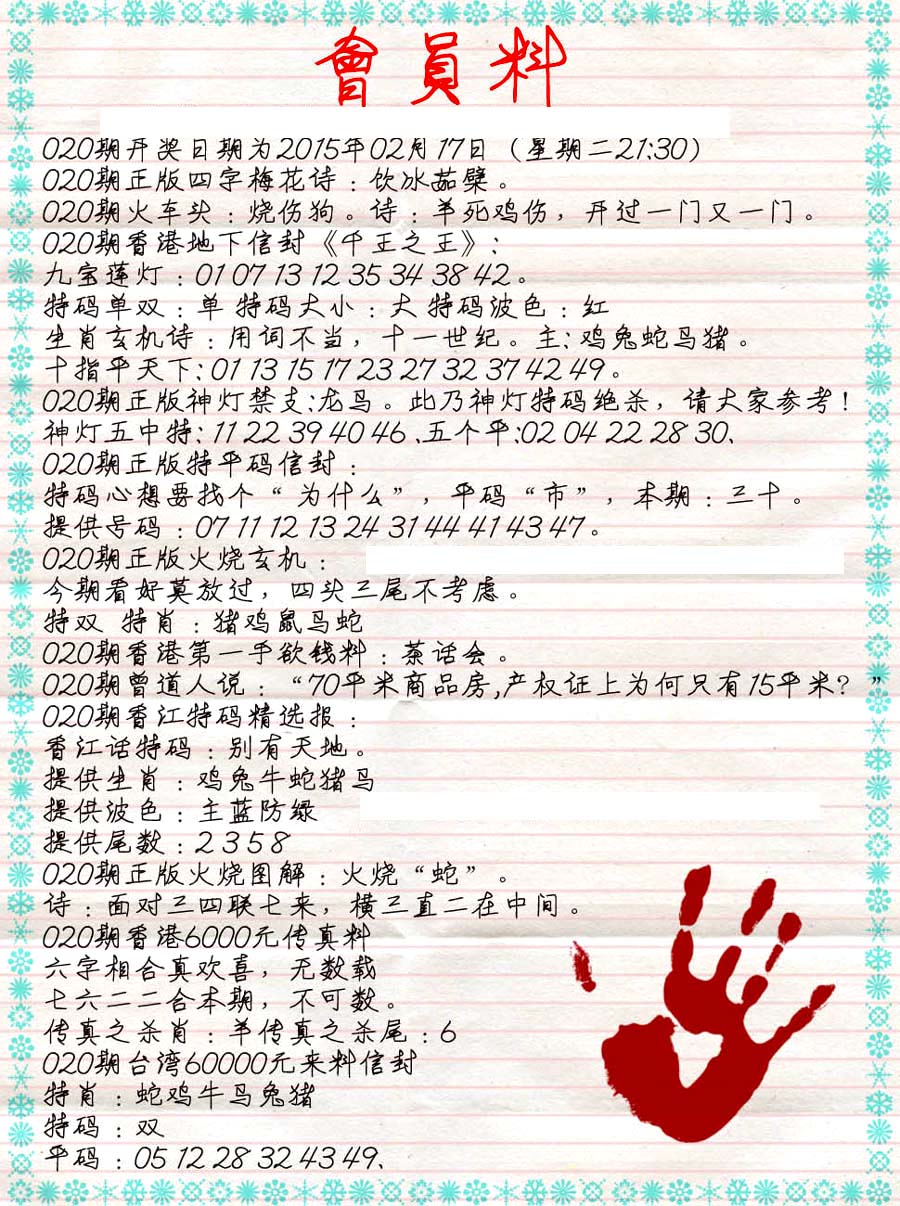 會員料
020期开奖日期为2015年02月17日（星期二21:30）
020期正版四字梅花诗：饮冰茹檗。
020期火车头：烧伤狗。诗：羊死鸡伤，开过一门又一门。
020期香港地下信封《千王之王》：
九宝莲灯：01 07 13 12 35 34 38 42。
特码单双：单 特码大小：大 特码波色：红
生肖玄机诗：用词不当，十一世纪。主：鸡兔蛇马猪。
十指平天下：01 13 15 17 23 27 32 37 42 49。
020期正版神灯禁支:龙马。此乃神灯特码绝杀，请大家参考！
神灯五中特：11 22 39 40 46 .五个平:02 04 22 28 30、
020期正版特平码信封：
特码心想要找个“为什么”，平码“市”，本期：三十。
提供号码：07 11 12 13 24 31 44 41 43 47。
020期正版火烧玄机：
今期看好莫放过，四头三尾不考虑。
特双 特肖：猪鸡鼠马蛇
020期香港第一手欲钱料：茶话会。
020期曾道人说：“70平米商品房,产权证上为何只有15平米？”
020期香江特码精选报：
香江话特码：别有天地。
提供生肖：鸡兔牛蛇猪马
提供波色：主蓝防绿
提供尾数：2 3 5 8
020期正版火烧图解：火烧“蛇”。
诗：面对三四联七来，横三直二在中间。
020期香港6000元传真料
六字相合真欢喜，无数载
七六二二合本期，不可数。
传真之杀肖：羊传真之杀尾：6
020期台湾60000元来料信封
特肖：蛇鸡牛马兔猪
特码：双
平码：05 12 28 32 43 49、